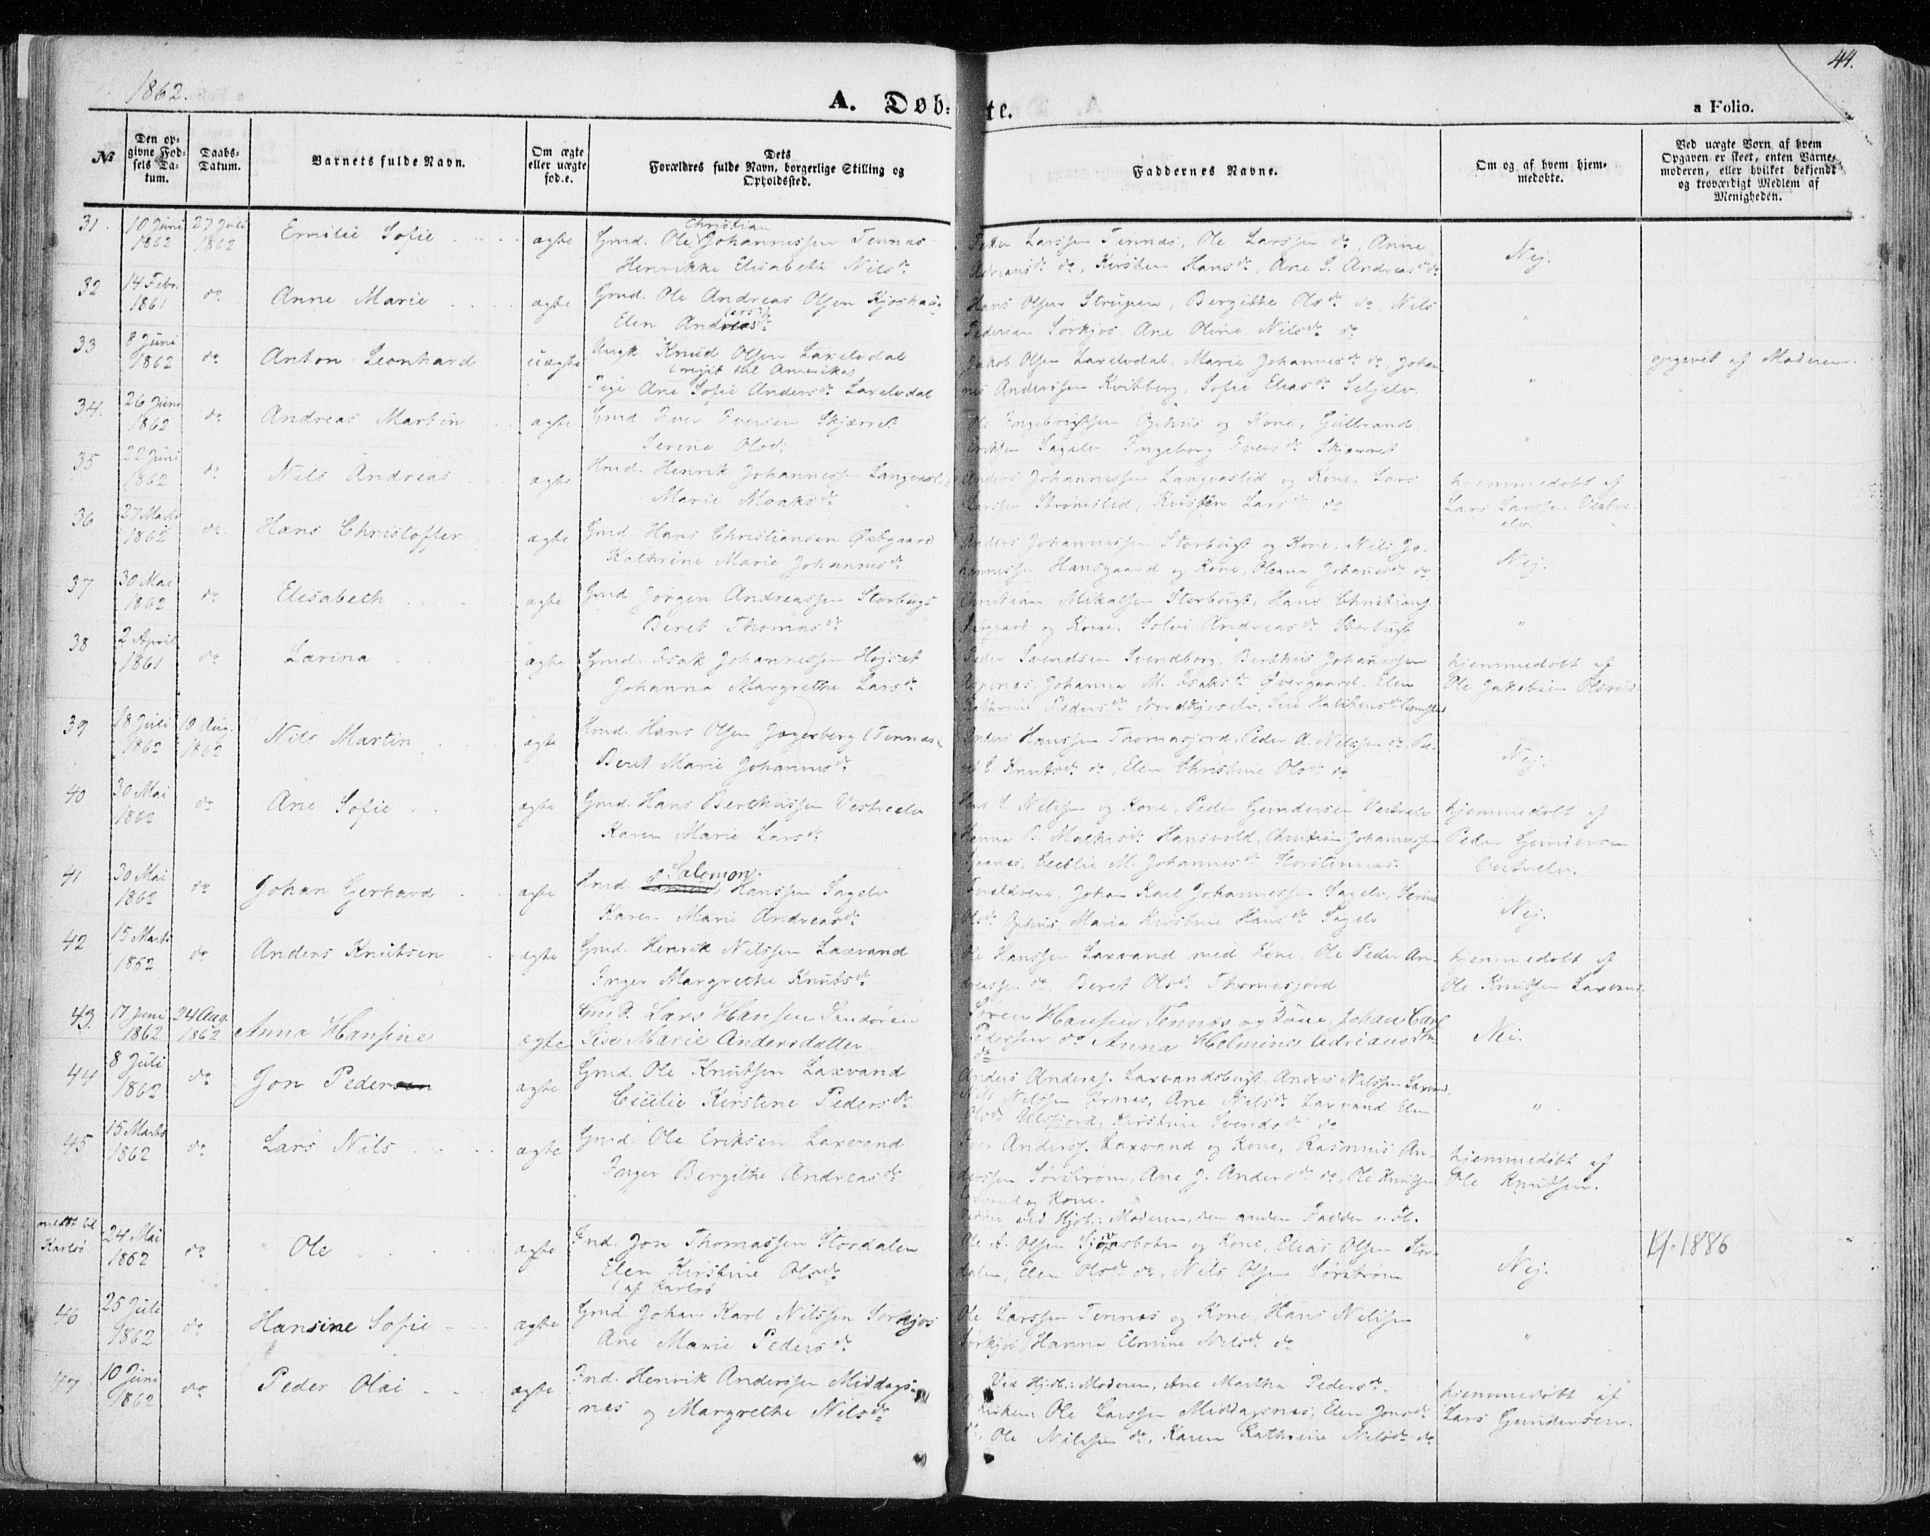 1862.
44.
A. Døb- te.
a Folio.
№
Den opgivne Fødsels Datum.
Daabs-Datum.
Barnets fulde Navn.
Om ægte eller uægte fød.e.
Dets Forældres fulde Navn, borgerlige Stilling og Opholdssted.
Faddernes Navne.
Om og af hvem hjemmedøbte.
Ved uægte Børn af hvem Opgaven er skeet, enten Barnemoderen, eller hvilket bekjendt og troværdigt Medlem af Menigheden.
31. 10 Juni 1862 27 Juli 1862 Emilie Sofie ægte Gmd. Ole Christian Johannessen Tennæs
Henrikke Elisabeth Nilsdr
Peder Larssen Tennæs, Ole Larssen do, Anne
Adriansdr do, Kirsten Hansdr, Ane S. Andreasdr do
Nej.
32 14 Febr. 1861 do Anne Marie ægte Gmd. Ole Andreas Olsen Kjoshaug
Elen Andreasdr
Hans Olsen Strupen, Bergitte Olsdr do, Nils
Pedersen Sørkjos, Ane Oline Nilsdr do
"
33 8 Juni 1862 do Anton Leonhard uægte Ungk. Knud Olsen Laxelvdal
(rejst til Amerika)
Pige Ane Sofie Andersdr Laxelvdal
Jakob Olsen Laxelvdal, Marie Johannesdr do, Johan-
nes Anderssen Kvitberg, Sofie Eliasdr Seljelv.
"
opgivet af Moderen.
34. 26 Juni 1862 do Andreas Martin ægte Gmd Iver Iversen Skjærret
Serine Olsdr
Ole Ingebrigtsen Ophus og Kone, Gulbrand
Eriksen Sagelv, Ingeborg Iversdr Skjæret
"
35 22 Juni 1862 do Nils Andreas ægte Hmd. Henrik Johannessen Langenslid
Marie Moaksdr
Anders Johannessen Langenslid og Kone, Lars
Larssen Strømslid, Kirsten Larsdr do
hjemmedøbt af
Lars Larssen
36 27 Marts 1862 do Hans Christoffer ægte Gmd. Hans Christiansen Østgaard
Kathrine Marie Johannesdr
Anders Johannessen Storbugt og Kone, Nils Jo-
hannessen Hansgaard og Kone, Oleana Johannesdr do
Nej.
37 30 Mai 1862 do Elisabeth ægte Gmd Jørgen Andreassen Storbugt
Beret Thomasdr
Christian Mikalsen Storbugt, Hans Christians.
Østgaard og Kone, Solvi Andreasdr Storbugt
"
38 2 April 1861 do Larina ægte Gmd. Isak Johannessen Højset
Johanna Margrethe Larsdr
Peder Svendsen Svendborg, Berthus Johannessen
Johanna M. Isaksdr Øvergaard, Elen
Kathrine Pedersdr Nordkjoselv,
hjemmedøbt af
Ole Jakobsen
39 18 Juli 1862 10 Aug. 1862 Nils Martin ægte Hmd. Hans Olsen Jægerberg (Tennæs)
Beret Marie Johannesdr
Anders Hanssen Thomasjord, Peder A. Nilssen do,
Knutsdr do, Elen Christine Olsdr do
Nej.
40 30 Mai 1862 do Ane Sofie ægte Gmd. Hans Berthussen Vestreelv
Karen Marie Larsdr
Hans L. Nilssen og Kone, Peder Gundersen Vestrelv
Hanna Hansvold, Christian Johannessen
Cecilie M. Johannesdr Horstinnæs.
hjemmedøbt af
Peder Gundersen
Vestrelv.
41 30 Mai 1862 do Johan Gerhard ægte Hmd. Salomon Hanssen Sagelv
Karen Marie Andreasdr
Forældrene, Johan Karl Johannessen Sagelv, Serine
Olsdr Ophus, Maria Kirstine Hansdr Sagelv
Nej.
42 15 Marts 1862 do Anders Knutsen ægte Gmd. Henrik Nilssen Laxvand
Inger Margrethe Knutsdr
Ole Hanssen Laxvand med Kone, Ole Peder An-
dreassen do, Beret Olsdr Thomasjord
hjemmedøbt af
Ole Knutsen Laxvand
43. 17 Juni 1862 24 Aug. 1862 Anna Hansine ægte Gmd. Lars Hansen Sandøren
Sise Marie Andersdatter
Søren Hansen Tennæs og Kone, Johan Carl
Pederssen do Anna Helmine Adriansdtr
do
Nei.
44 8 Juli 1862 do Jon Peder ægte Gmd. Ole Knutsen Laxvand
Cicilie Kirstine Pedersdr
Anders Anderss. Laxvandsbugt, Anders Nilssen Laxvand,
Nils Nilssen Ørnæs, Ane Nilsdr Laxvand Elen
Olsdr Ulsfjord, Kirstine Svendsdr do
"
45 15 Marts 1862 do Lars Nils ægte Gmd Ole Eriksen Laxvand
Inger Bergithe Andreasdr
Anderss. Laxvand og Kone, Rasmus An-
derssen Sørstrøm, Ane J. Andersdr do, Ole Knutsen
Laxvand og Kone.
ved Hjdb.: Moderen, den anden Fadder
hjemmedøbt af
Ole Knutsen.
meldt til Karlsø 24 Mai 1862 do Ole ægte Ind. Jon Thomassen Stordalen
Elen Kirstine Olsdr
(af Karlsø
Ole A. Olsen og Kone, Elias Olsen Stor-
dalen, Elen Olsdr do, Nils Olsen Sørstrøm
Nej.
1886
46 25 Juli 1862 do Hansine Sofie ægte Gmd. Johan Karl Nilssen Sørkjos
Ane Marie Pedersdr
Ole Larssen Tennæs og Kone, Hans Nilssen
Sørkjos, Hanna Elmine Nilsdr do
"
47 10 Juni 1862 do Peder Olai ægte Ind. Henrik Anderssen Middags-
næs og Margrethe Nilsdr
Ved Hjdb.: Moderen, Ane Martha Pedersdr.
Kirken, Ole Larssen Middagsnæs, Elen Jonsdr
do, Ole Nilssen do, Karen Kathrine Nilsdr do
hjemmedøbt af
Lars Gundersen.